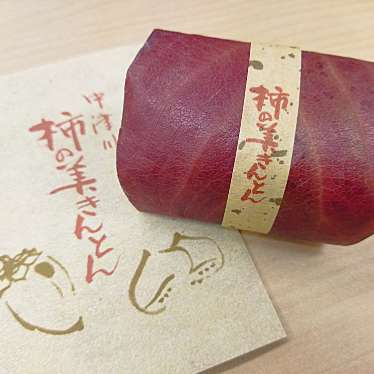 中津川
柿の美きんとん
柿の美きんとん